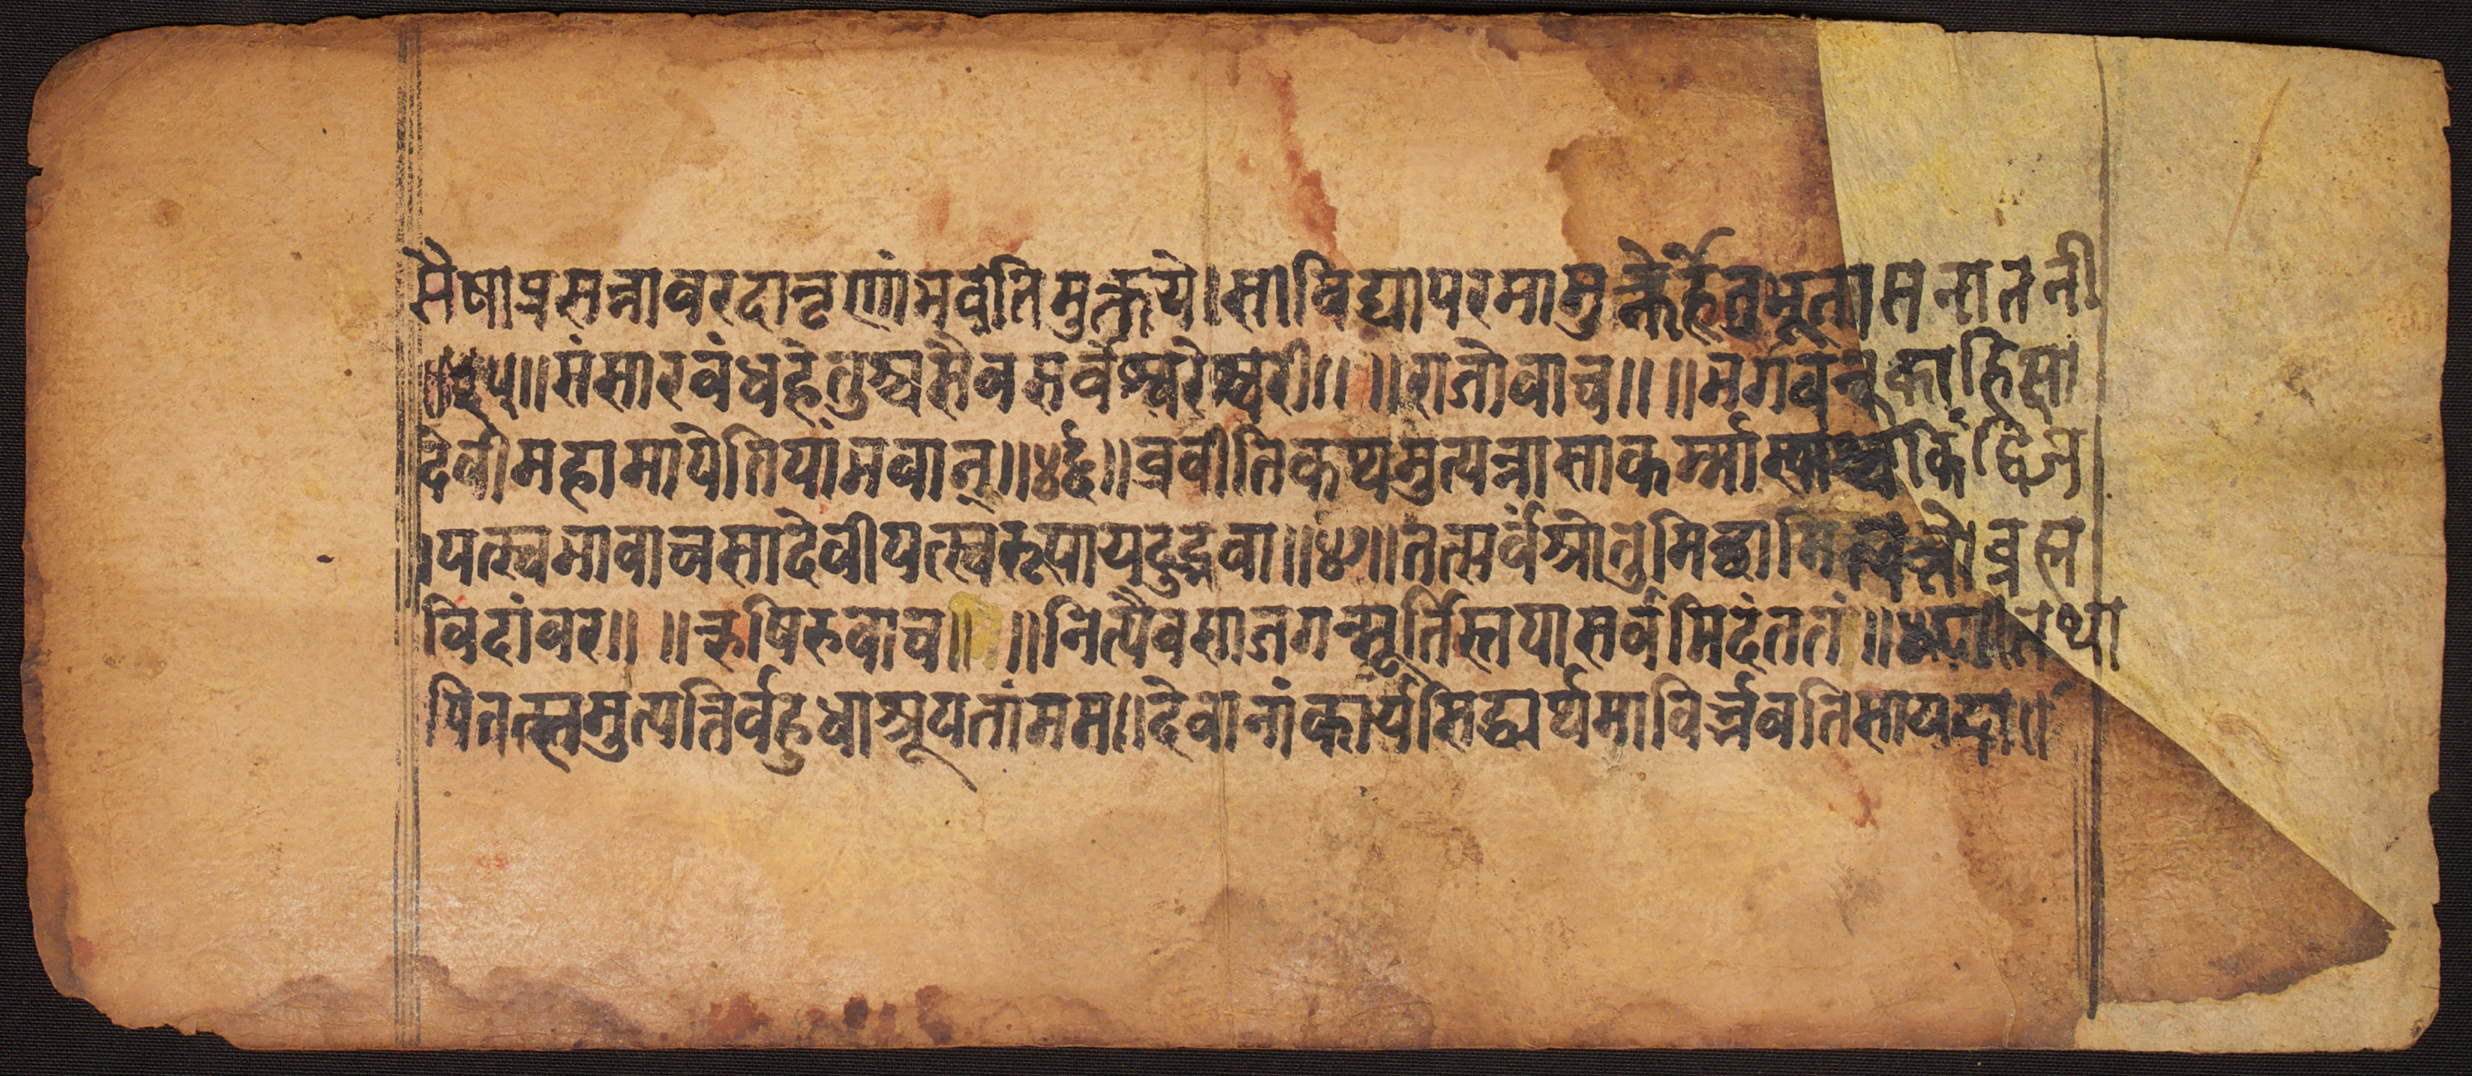 सैषाप्रसन्नावरदानृणांभवतिमुक्तये।साविद्यापरमामुक्तेर्हेतुभूतासनातनी
॥४५॥संसारवंधहेतुश्चसैवसर्वेश्वरेश्वरी॥ ॥राजोवाच॥ ॥भगवन्काहिसा
देवीमहामायेतियांभवान्॥४६॥व्रवीतिकथमुत्पन्नासाकर्म्मास्याश्चकिंद्विज
।यत्स्वभावाचसादेवीयत्स्वरूपायदुद्भवा॥४७॥तत्सर्वंश्रोतुमिछामित्वत्तोव्रह्म
विदांवर॥ ॥ऋषिरुवाच॥ ॥नित्यैवसाजगन्मूर्तिस्तयासर्वमिदंततं॥४८॥तथा
पितत्समुत्पत्तिर्वहुधाश्रूयतांमम॥देवानांकार्यसिद्ध्यर्थमाविर्भवतिसायदा॥